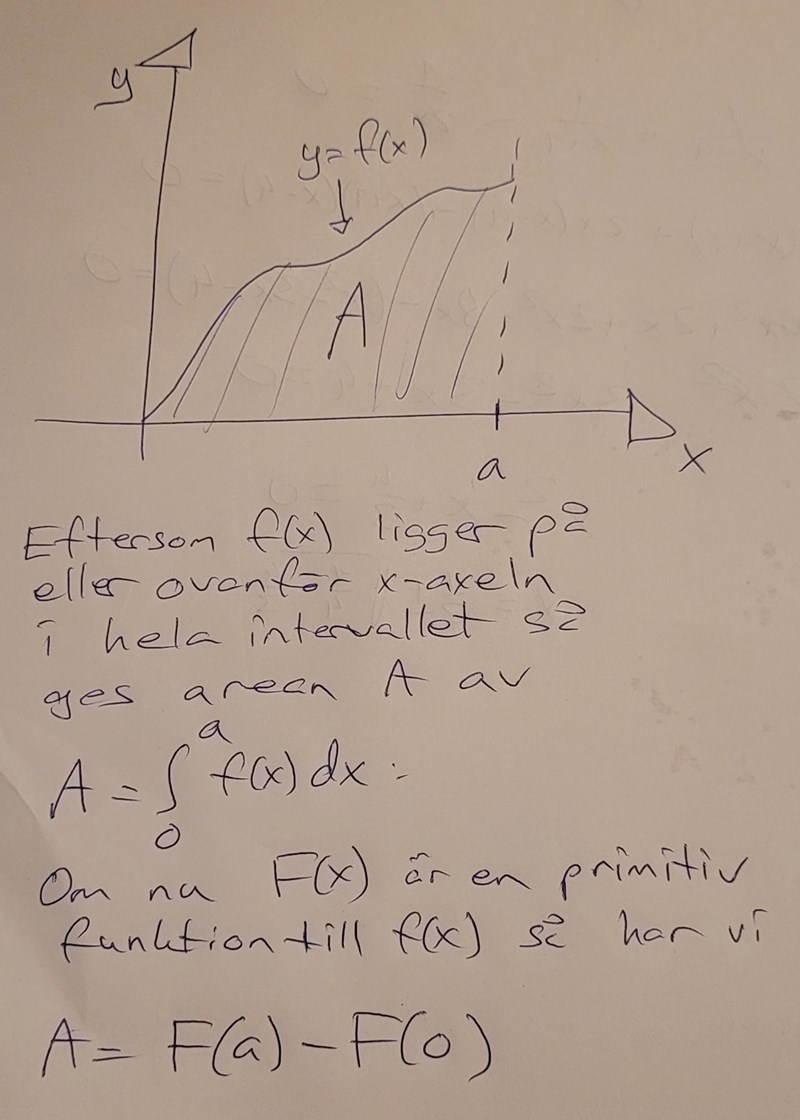 y
y=f(x)
A
a
x
Eftersom f(x) ligger på
eller ovanför x-axeln
i hela intervallet så
ges arean A av
A = ∫₀ᵃ f(x) dx .
Om nu F(x) är en primitiv
funktion till f(x) så har vi
A = F(a) - F(0)